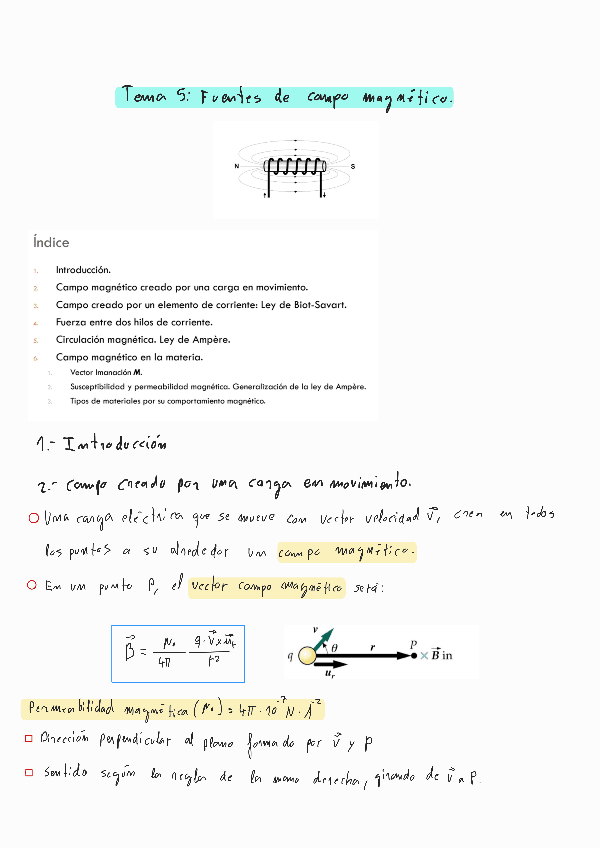 Tema 5: Fuentes de campo magnético.
N S
Índice
1. Introducción.
2. Campo magnético creado por una carga en movimiento.
3. Campo creado por un elemento de corriente: Ley de Biot-Savart.
4. Fuerza entre dos hilos de corriente.
5. Circulación magnética. Ley de Ampère.
6. Campo magnético en la materia.
1. Vector Imanación M.
2. Susceptibilidad y permeabilidad magnética. Generalización de la ley de Ampère.
3. Tipos de materiales por su comportamiento magnético.
1.- Introducción
2.- Campo creado por una carga en movimiento.
Una carga eléctrica que se mueve con vector velocidad v⃗, crea en todos
los puntos a su alrededor un campo magnético.
En un punto P, el vector campo magnético será:
B⃗ = μ₀/4π · q·v⃗×u⃗r/r²
v θ r P × B⃗ in
q
uᵣ
Permeabilidad magnética (μ₀) = 4π·10⁻⁷ N·A⁻²
Dirección perpendicular al plano formado por v⃗ y P
Sentido según la regla de la mano derecha, girando de v⃗ a P.